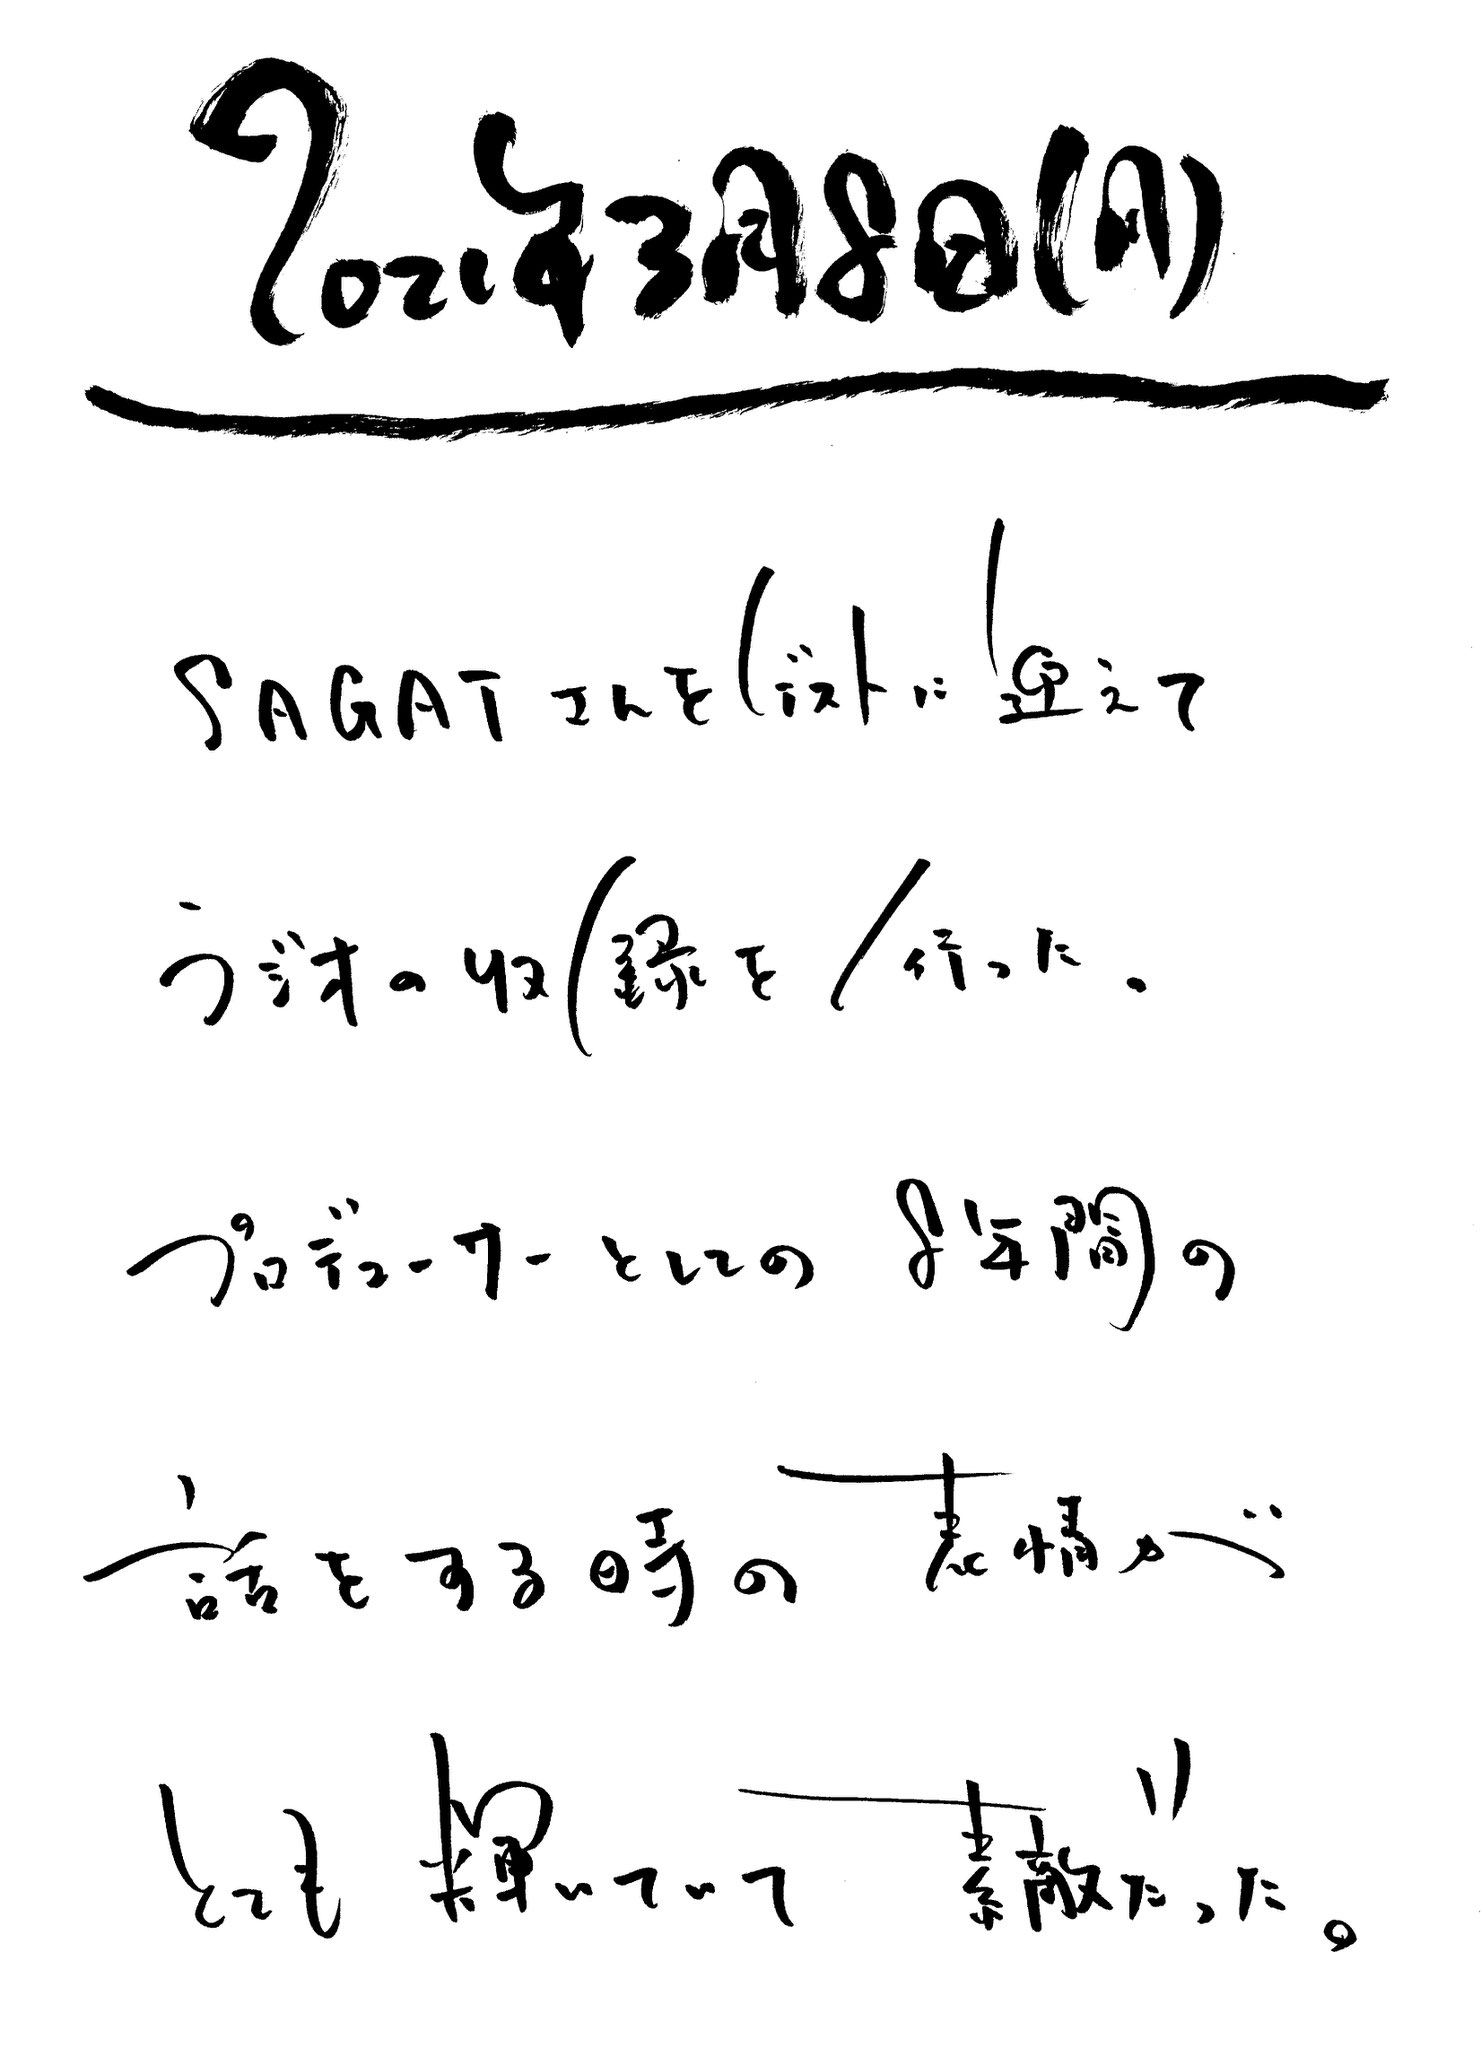 2021年3月8日(月)
SAGATさんをゲストに迎えて
ラジオの収録を行った。
プロデューサーとしての8年間の
話をする時の表情が
とても輝いていて素敵だった。